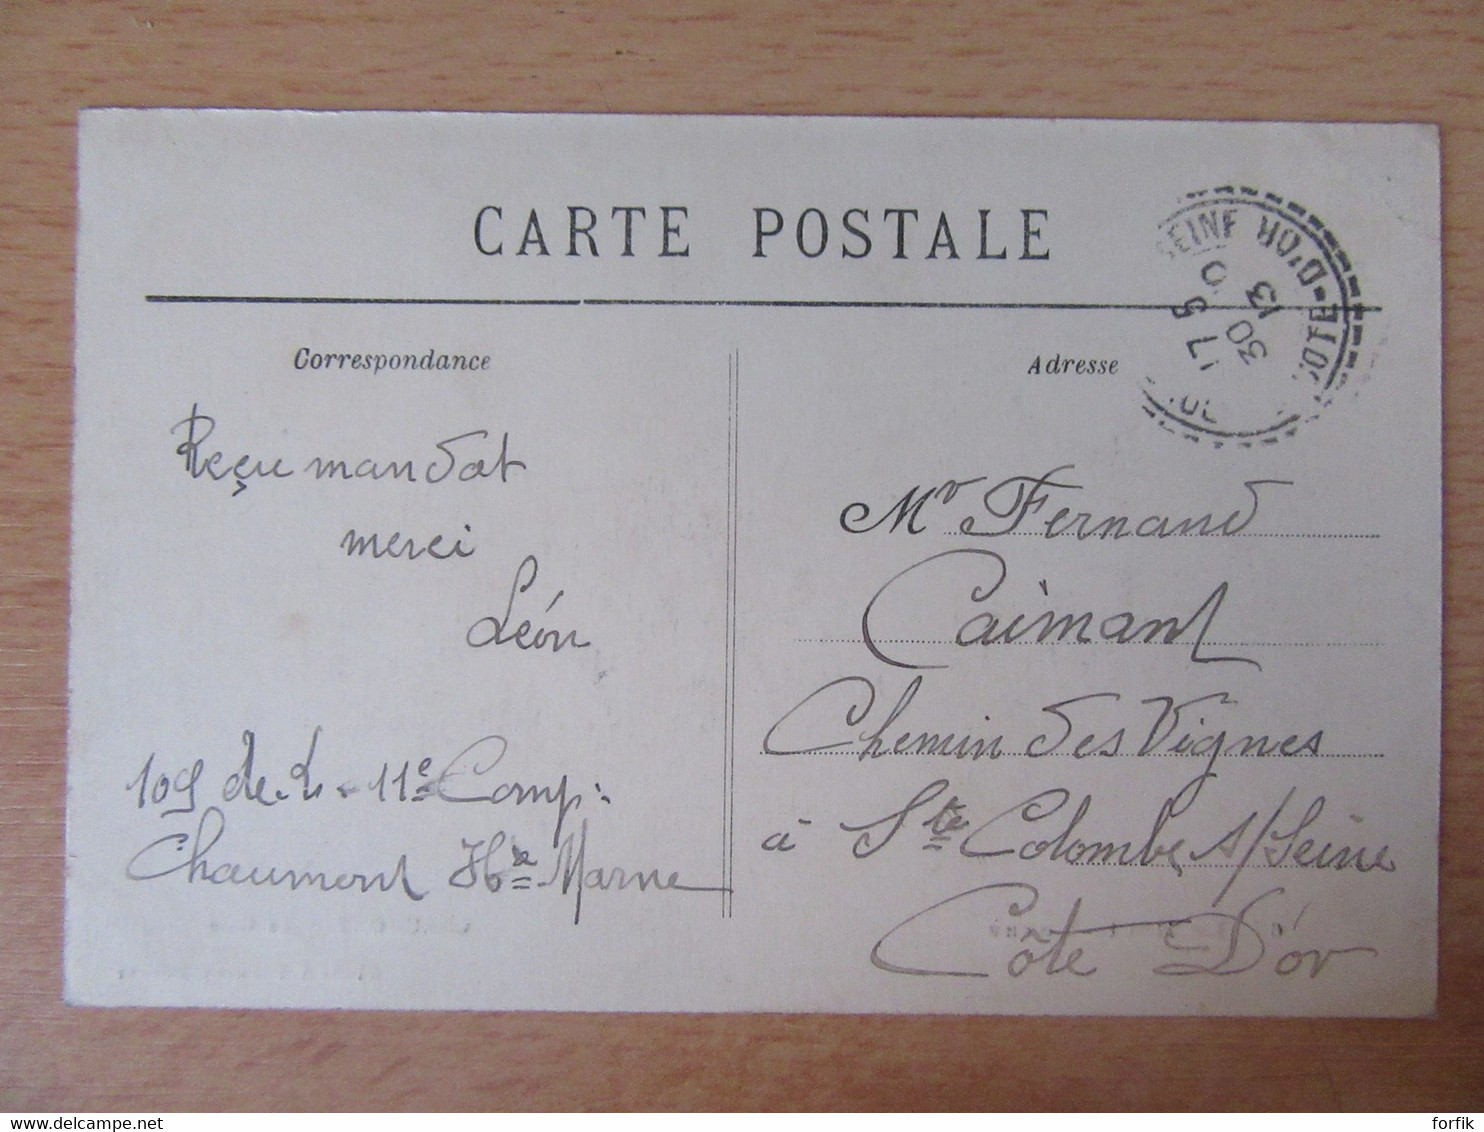 CARTE POSTALE
Correspondance
Reçu mandat
merci
Léon
109 de L. 11e Comp.
Chaumont Hte Marne
Adresse
Mr Fernand
Caimant
Chemin des Vignes
à Ste Colombe s/Seine
Côte D'or
SEINE
COTE-D'OR
17 5
30
13
forfik